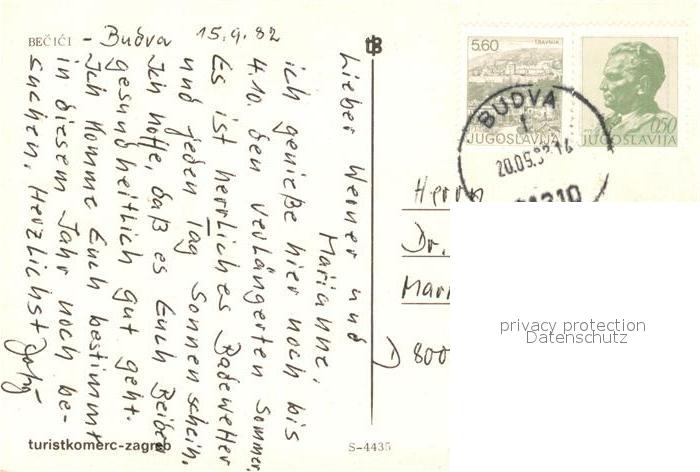 BEČIĆI - Budva 15.9.82
Lieber Werner und
Marianne,
ich genieße hier noch bis
4.10. den verlängerten Sommer.
Es ist herrliches Badewetter
und jeden Tag Sonnenschein.
Ich hoffe, daß es Euch Beiden
gesundheitlich gut geht.
Ich komme Euch bestimmt
in diesem Jahr noch be-
suchen. Herzlichst
turistkomerc-zagreb
S-4435
tB
5.60
TRAVNIK
JUGOSLAVIJA
0.50
JUGOSLAVIJA
BUDVA
1
Herrn
Dr.
D 800
privacy protection
Datenschutz